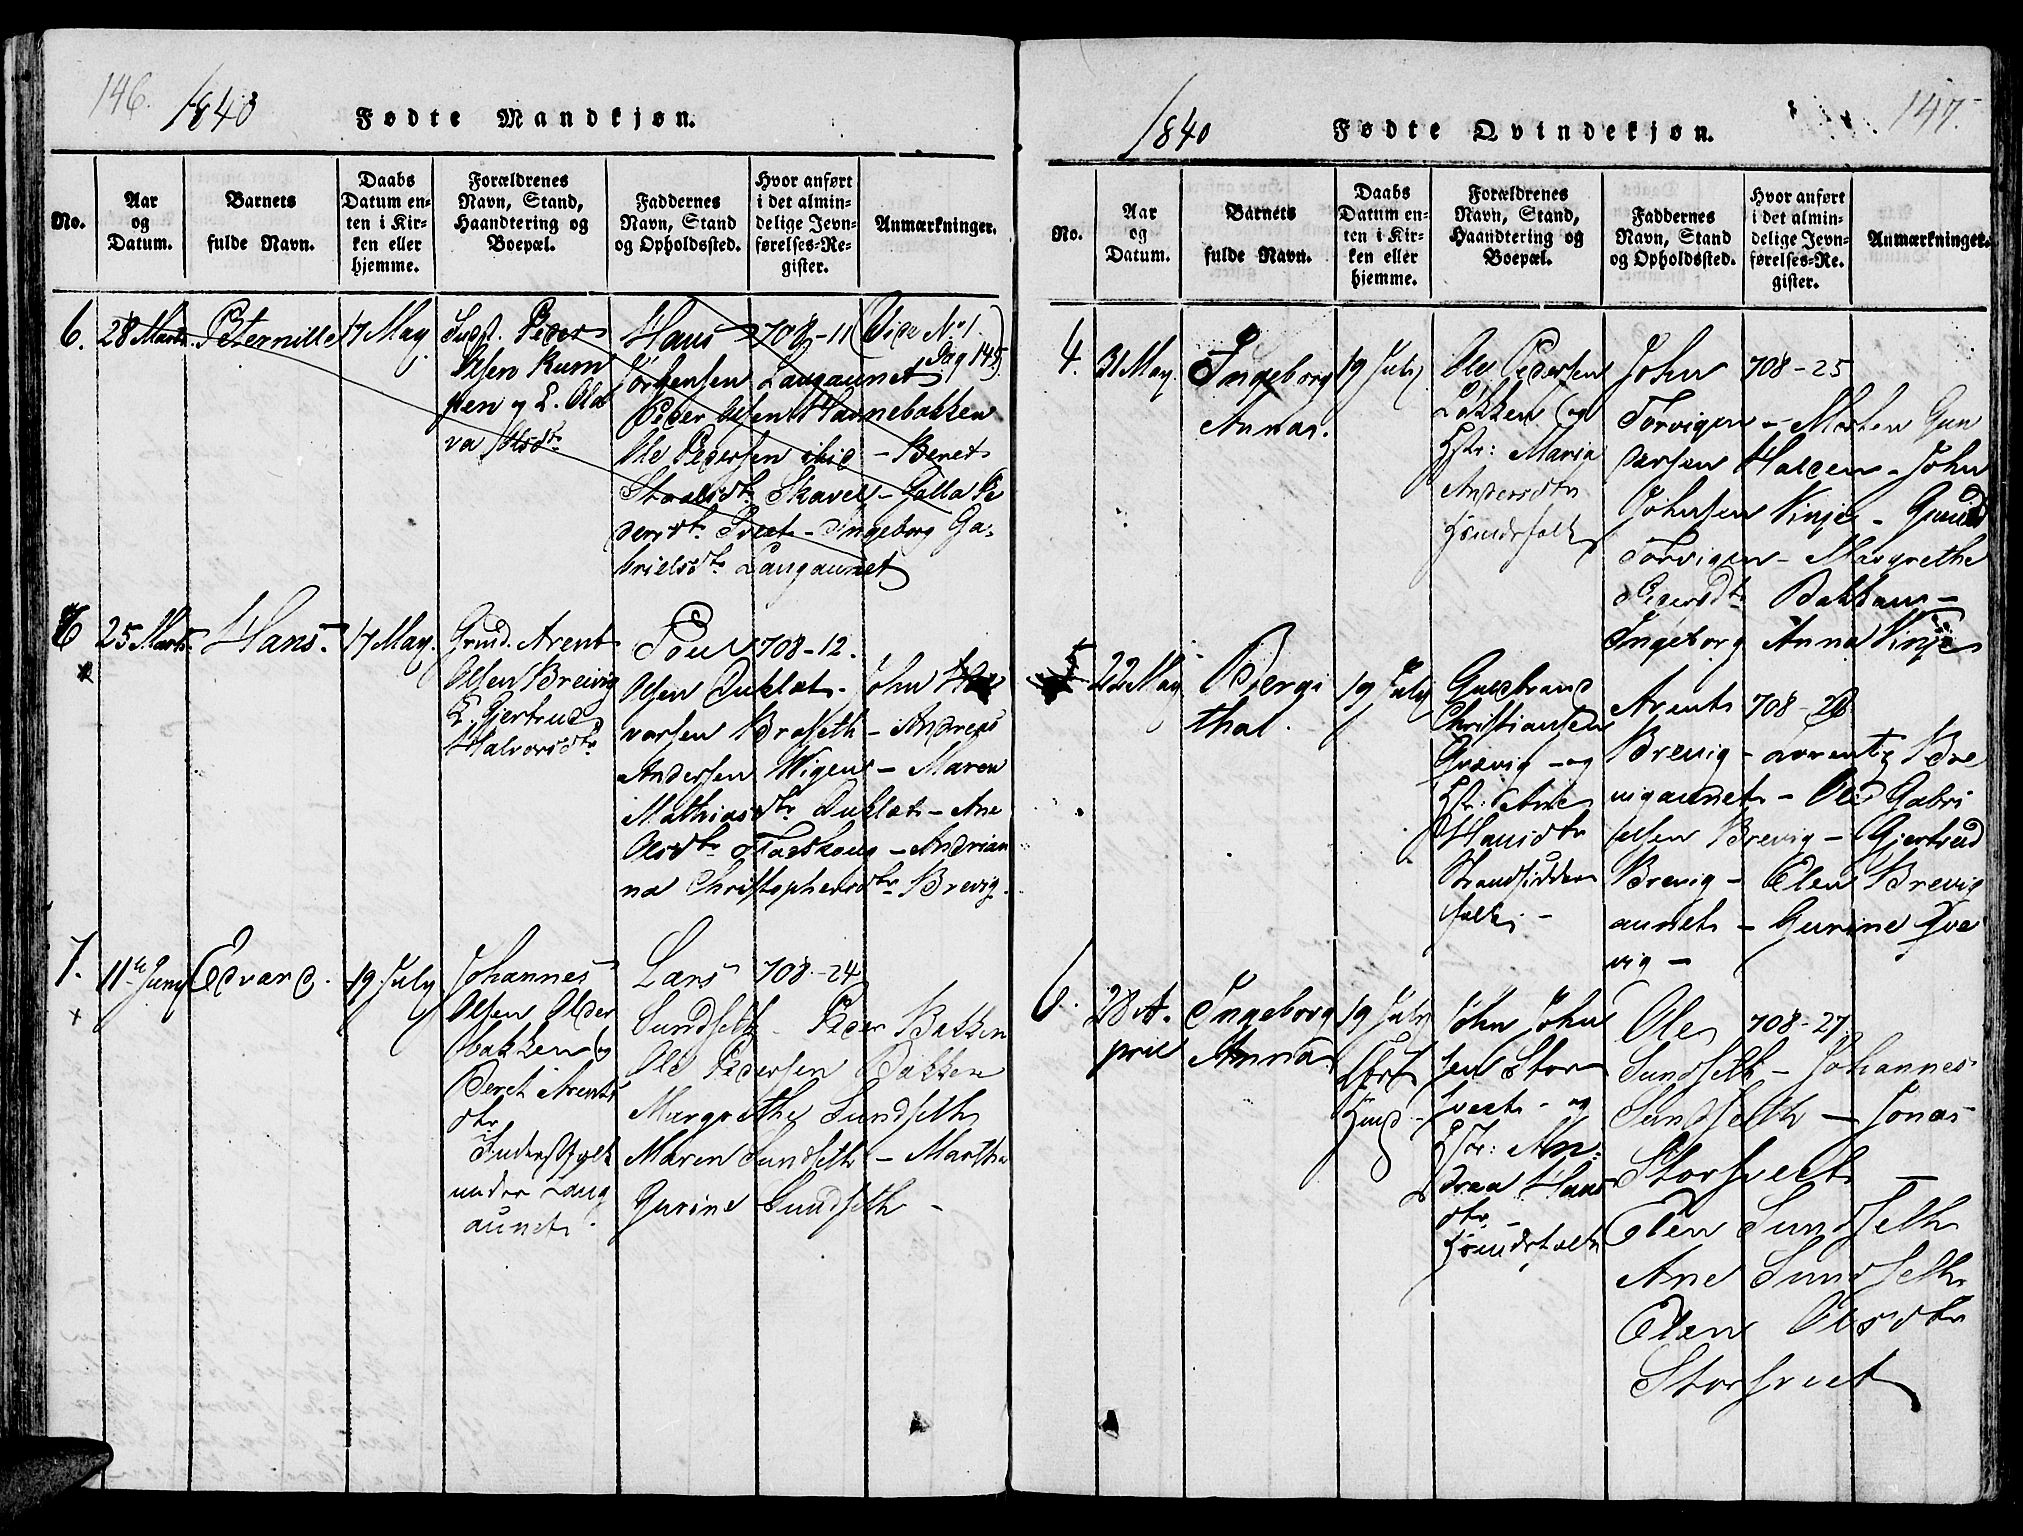 146. 1840 Fødte Mandkjøn.
No.
Aar
og
Datum.
Barnets
fulde Navn.
Daabs
Datum en-
ten i Kir-
ken eller
hjemme.
Forældrenes
Navn, Stand,
Haandtering og
Boepæl.
Faddernes
Navn, Stand
og Opholdssted.
Hvor anført
i det almin-
delige Jevn-
førelses-Re-
gister.
Anmærkninger.
6. 28 Marts. Peternille 17 May
Indst. Peder
Olsen Rum
pen og E. Ola
va Olsdtr
Hans 708-11 (Vide No 1.
Jørgensen Langaunet Pag 145)
Peder Olsen Havnebakken
Ole Pedersen ibid - Beret
Skavel - Golla Pe
dersdtr. Tvet - Ingeborg Ga-
brielsdtr Langaunet
6 25 Marts. Hans. 17 May.
Grud. Arent
Olsen Breivig
E. Gjertrud
Halvorsdtr
Poul 708-12.
Olsen Duklæt. John
varsen Braseth - Andreas
Andersen Wigen - Maren
Mathiasdtr Duklæt - Ane
Olsdtr - Andrian
na Christophersdtr Brevig.
7. 11te Juny Edvard. 19 July
Johannes
Olsen Older
bakken og
Beret Arents
dtr
Inderstfolk
under Lang
aunet.
Lars 708-24
Sundseth - Peder Bakken
Ole Pedersen Bakken
Margrethe Sundseth
Maren Sundseth - Martha
Gurine Sundseth -
1840 Fødte Qvindekjøn. 147.
No.
Aar
og
Datum.
Barnets
fulde Navn.
Daabs
Datum en-
ten i Kir-
ken eller
hjemme.
Forældrenes
Navn, Stand,
Haandtering og
Boepæl.
Faddernes
Navn, Stand
og Opholdssted.
Hvor anført
i det almin-
delige Jevn-
førelses-Re-
gister.
Anmærkninger.
4. 31 May. Ingeborg 19 July
Anna.
Ole Pedersen
Løkken og
Hstr: Maria
Andersdtr
Huusfolk
John 708-25
Torvigen - Morten Gun
dersen Halden - John
Johnsen Vinje - Gunild
Torvigen - Margrethe
Pedersdtr Bakken -
Ingeborg Anna Vinje
5 22 May Bergi 19 July
thal.
Guldbrand
Christiansen
Qvævig - og
Hstr: Ane
Hansdtr
Strandsidder
folk. -
Arent 708-26
Brevig - Lorentz Bre
vigaunet - Ole Gabri
elsen Brevig - Gjertrud
Brevig - Elen Brevig
aunet - Gurine Qvæ
vig -
6. 28 A- Ingeborg 19 July
pril Anna
John John
sen Stor
tveet - og
Hstr: An-
drea Hans
dtr -
Huusfolk
Ole 708-27.
Sundseth - Johannes
Sundseth - Jonas
Stortveet -
Elen Sundseth
Ane Sundseth
Elen Olsdtr
Stortveet